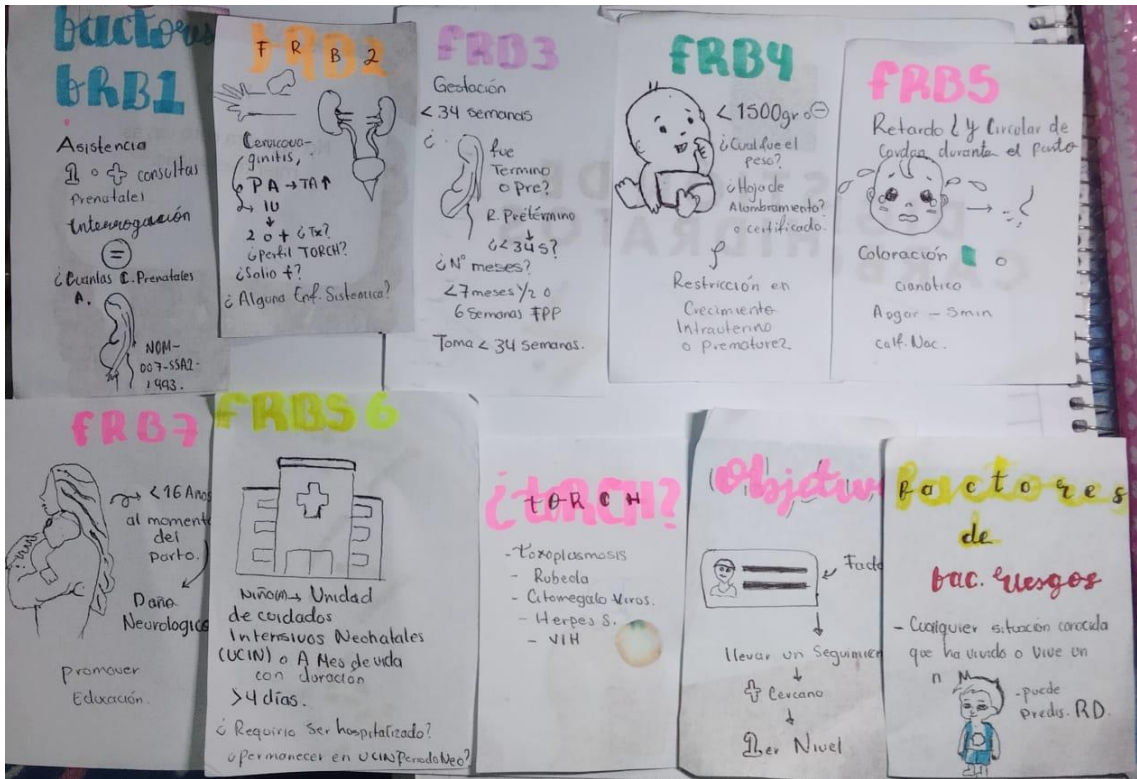 factores
FRB1
Asistencia
1 o + consultas
Prenatales
Interrogación
=
¿Cuantas C. Prenatales
A.
NOM-
007-SSA2-
1993.
FRB2
Cervicova-
ginitis,
PA → TA ↑
→ IU
↓
2 o + ¿Tx?
¿Perfil TORCH?
¿Salio +?
¿Alguna Enf. Sistemica?
FRB3
Gestación
<34 semanas
¿ fue
Termino
o Pre?
R. Pretérmino
↓
¿<34s?
¿N° meses?
<7meses 1/2 o
6 Semanas FPP
Toma <34 semanas.
FRB4
<1500gr o ⊖
¿Cual fue el
peso?
¿Hoja de
Alumbramiento?
o certificado.
Restricción en
Crecimiento
Intrauterino
o Prematurez
FRB5
Retardo ll y Circular de
Cordon durante el parto
→
Coloración o
cianótico
Apgar - 5min
calf. Nac.
FRB7
→ <16 Años
al momento
del
parto.
Daño
Neurologico
promover
Educación.
FRBS6
Niño/a → Unidad
de cuidados
Intensivos Neonatales
(UCIN) o A Mes de vida
con duración
>4 días.
¿Requirio Ser hospitalizado?
¿permanecer en UCIN Periodo Neo?
¿tORCH?
tORCH
-Toxoplasmosis
- Rubeola
- Citomegalo Viros.
- Herpes S.
- VIH
Objetivo
← Facto
↓
llevar un Seguimie
↓
+ Cercano
↓
1er Nivel
Factores
de
bac. riesgos
- Cualquier situación conocida
que ha vivido o vive un
n
-puede
Predis. RD.